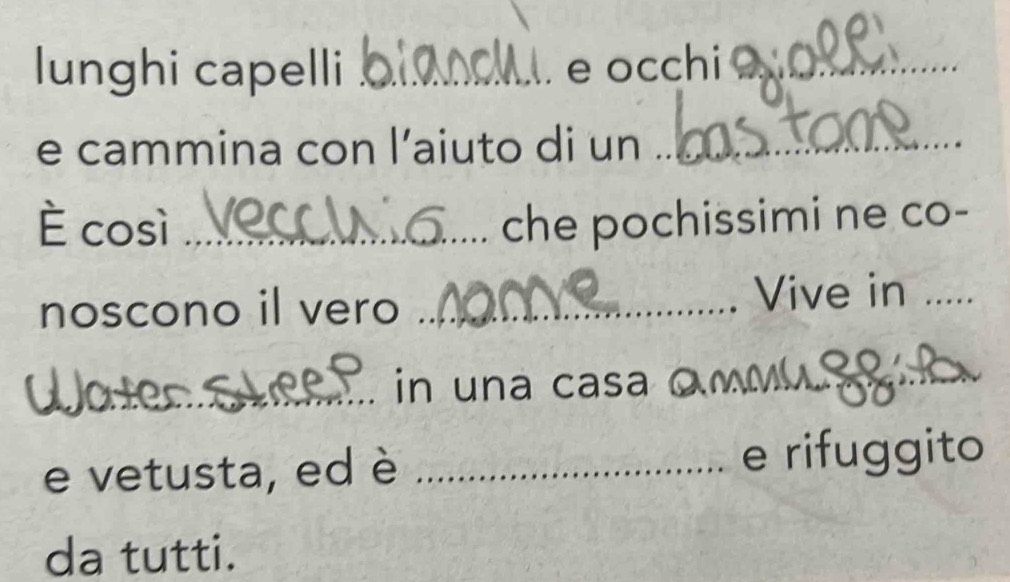 lunghi capelli bianchi e occhi gialli
e cammina con l'aiuto di un bastone.
È così vecchio che pochissimi ne co-
noscono il vero nome. Vive in
Water Street in una casa ammuggita
e vetusta, ed è ........................ e rifuggito
da tutti.